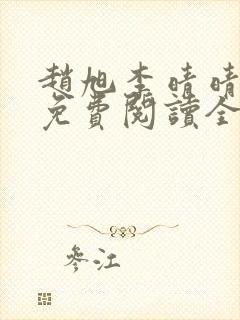 趙旭李晴晴
免費閱讀全
參江